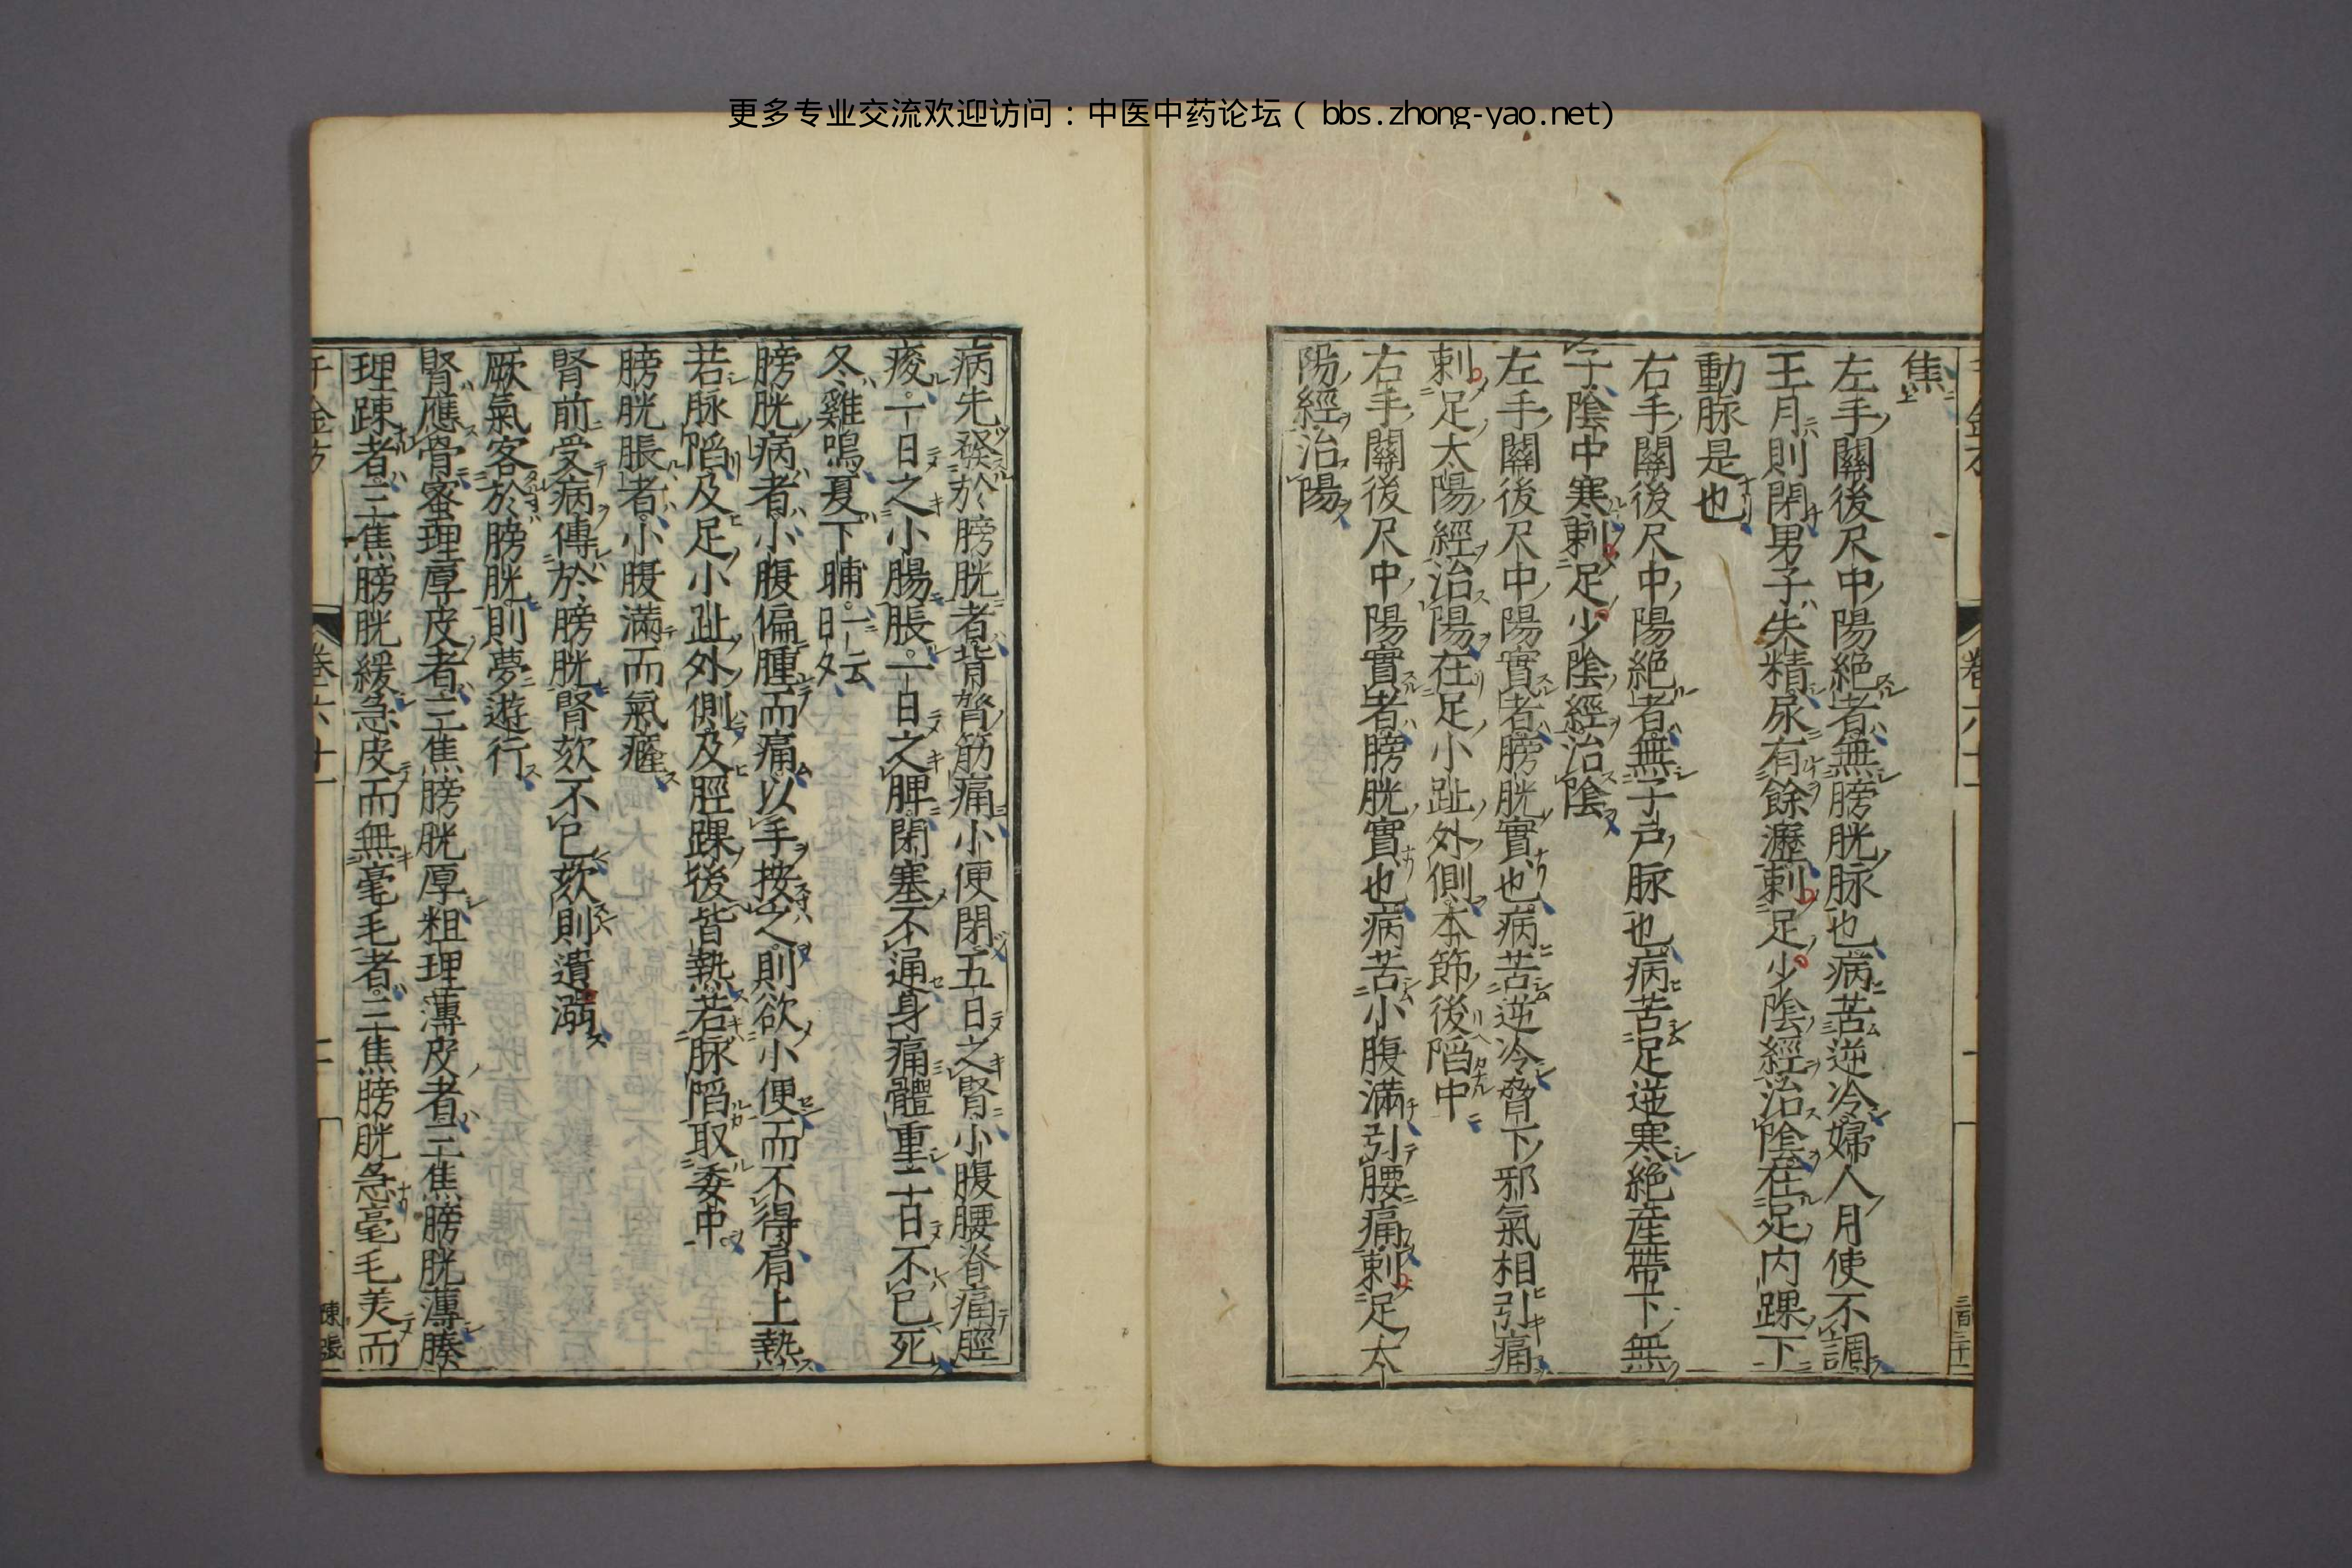 更多专业交流欢迎访问：中医中药论坛（bbs.zhong-yao.net)
焦上
左手關後尺中陽絕者無膀胱脉也病苦逆冷婦人月使不調
王月則閉男子失精尿有餘瀝刺足少陰經治陰在足内踝下
動脉是也
右手關後尺中陽絕者無子戸脉也病苦足逆寒絕産帶下無
子陰中寒刺足少陰經治陰
左手關後尺中陽實者膀胱實也病苦逆冷脅下邪氣相引痛
刺足太陽經治陽在足小趾外側本節後陷中
右手關後尺中陽實者膀胱實也病苦小腹滿引腰痛刺足太
陽經治陽
卷六十
三百三十一
病先發於膀胱者背膂筋痛小便閉五日之腎小腹腰脊痛脛
痠一日之小腸脹一日之脾閉塞不通身痛體重二日不已死
冬雞鳴夏下晡一云日夕
膀胱病者小腹偏腫而痛以手按之則欲小便而不得肩上熱
若脉陷及足小趾外側及脛踝後皆熱若脉陷取委中
膀胱脹者小腹滿而氣癃
腎前受病傳於膀胱腎欬不已欬則遺溺
厥氣客於膀胱則夢遊行
腎應骨蜜理厚皮者三焦膀胱厚粗理薄皮者三焦膀胱薄腠
理踈者三焦膀胱緩急皮而無毫毛者三焦膀胱急毫毛美而
千金方
卷六十
二